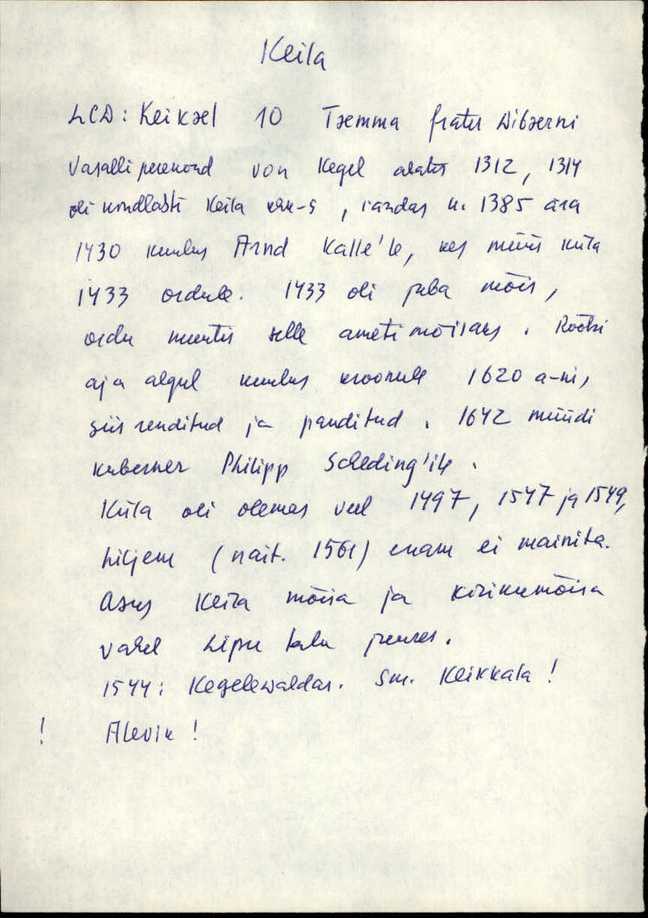 Keila
LCD: Keikæl 10 Tæmma frater Dibærni
Vasalliperekond von Kegel alates 1312, 1314
oli kindlasti Keila kih-s, randas u. 1385 ära
1430 kuulus Arnd Kalle'le, kes müüs küla
1433 ordule. 1433 oli juba mõis,
ordu muutis selle ametimõisaks. Rootsi
aja algul kuulus kroonule 1620 a-ni,
siis renditud ja panditud. 1642 müüdi
kuberner Philipp Scheding'ile.
Küla oli olemas veel 1497, 1547 ja 1549,
hiljem (näit. 1561) enam ei mainita.
Asus Keila mõisa ja kirikumõisa
vahel Lipu talu juures.
1544: Kegelewaldas. Sm. Keikkala!
! Alevik!